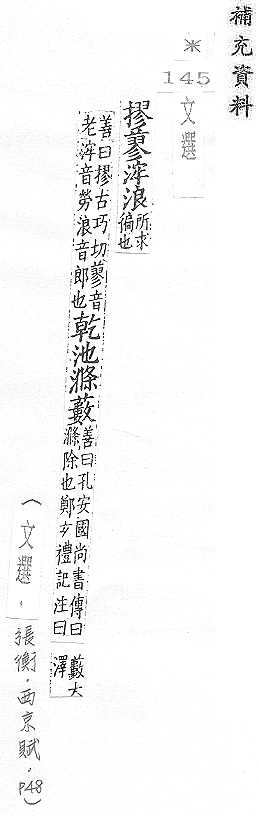 補充資料
※
145
文選
摎蓼浶浪所求
徧也
善曰摎古巧切蓼音
老浶音勞浪音郎也乾池滌藪善曰孔安國尚書傳曰
滌除也鄭玄禮記注曰
藪大
澤
(文選,張衡.西京賦.P48)